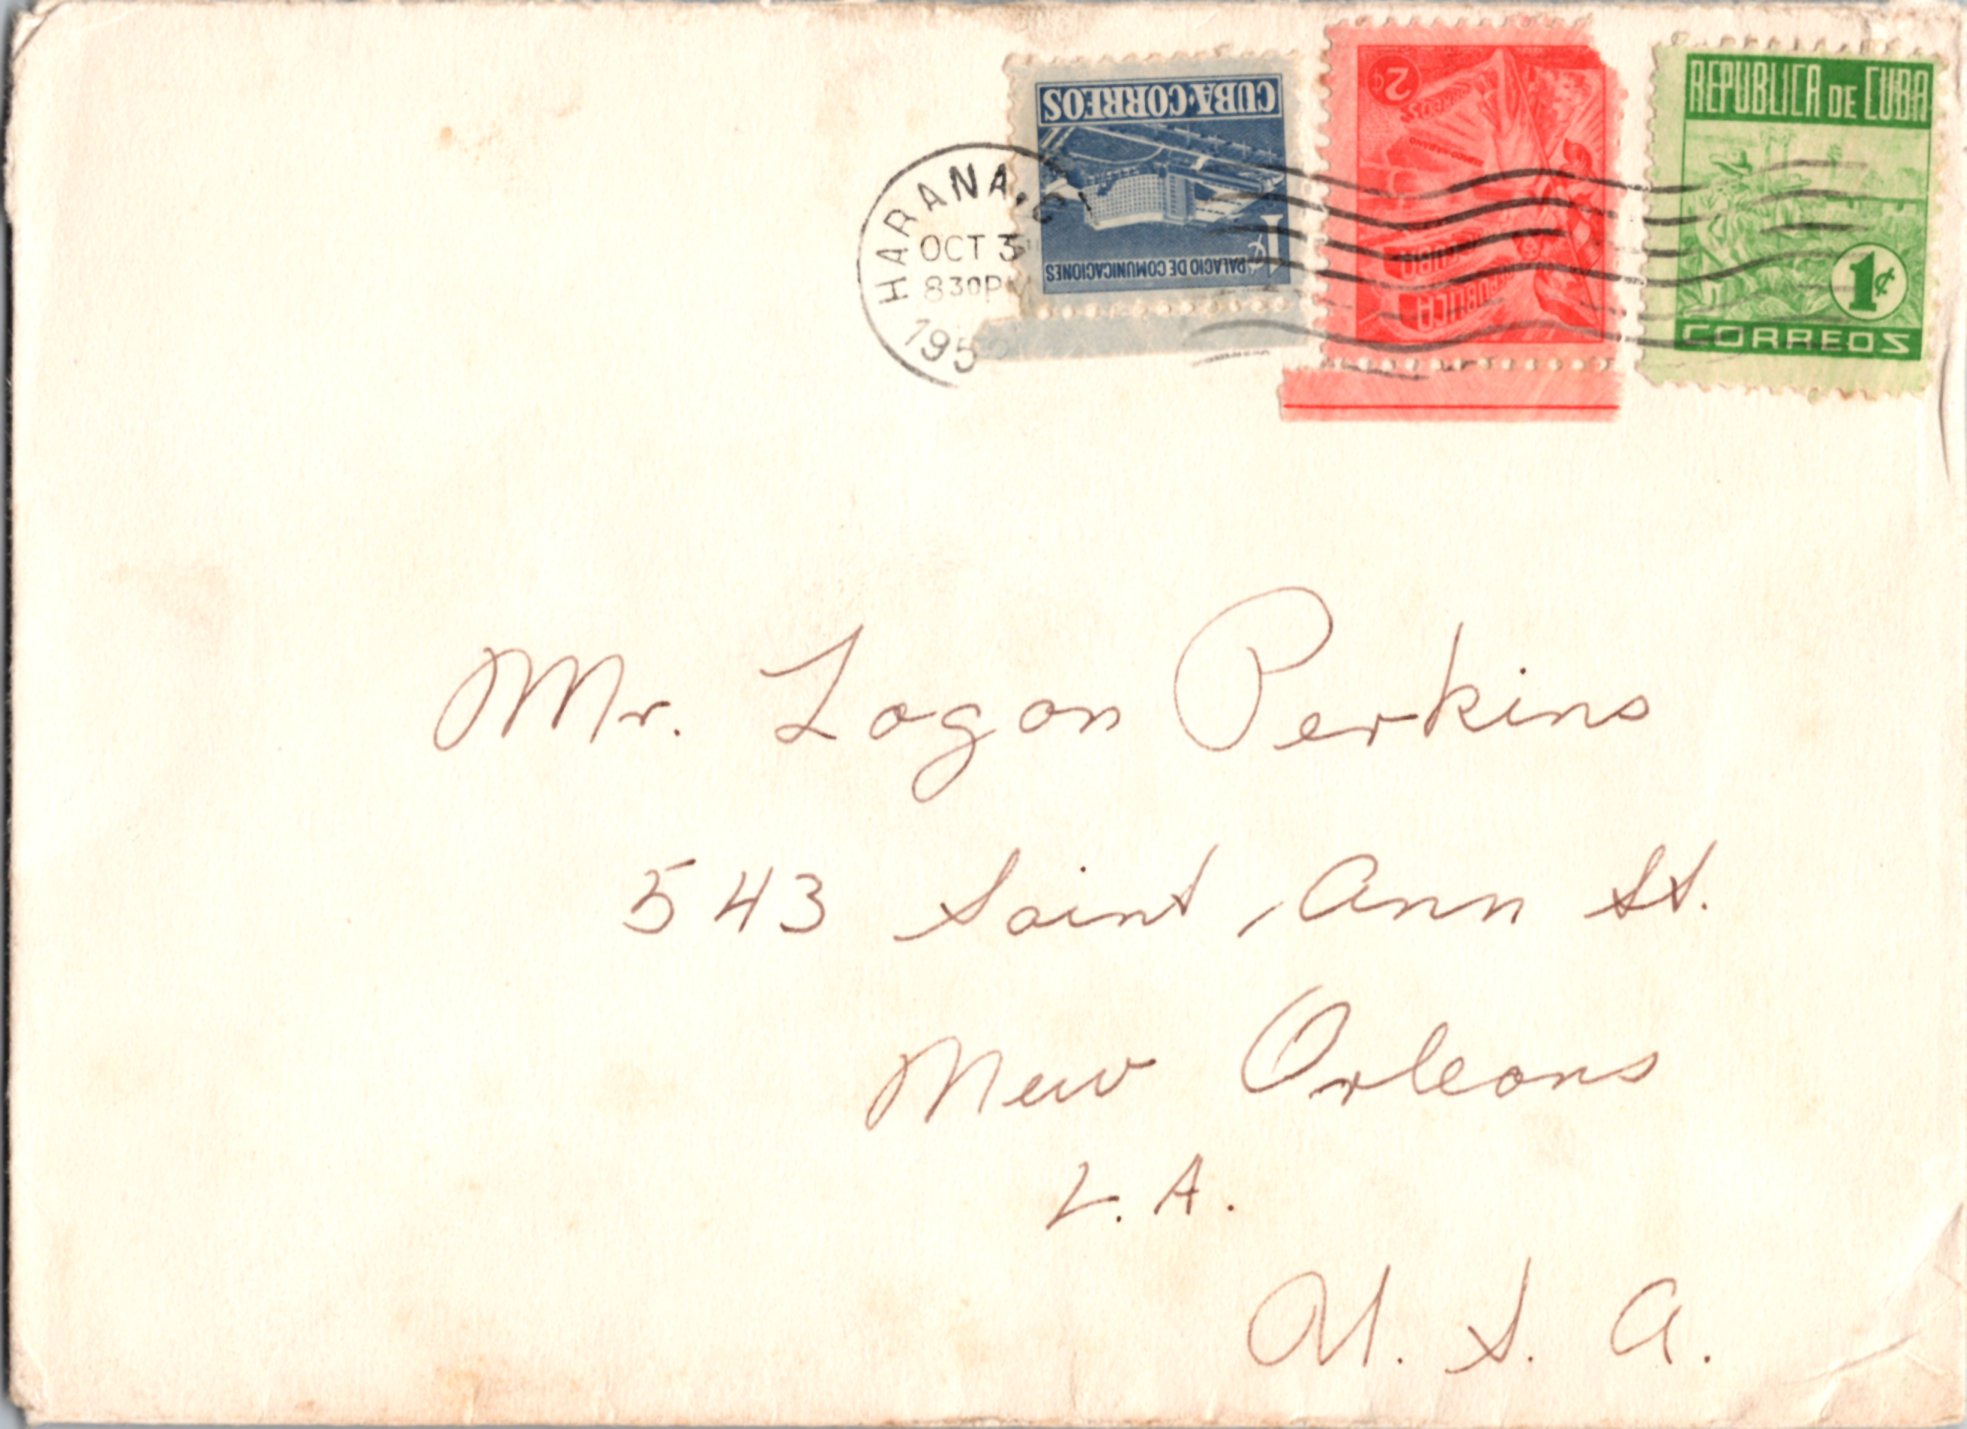 CUBA·CORREOS
1¢
PALACIO DE COMUNICACIONES
2¢
CORREOS
TABACO HABANO
REPUBLICA
DE CUBA
REPUBLICA DE CUBA
1¢
CORREOS
HABANA,
OCT 3
830PM
195
Mr. Logan Perkins
543 Saint Ann St.
New Orleans
L.A.
U.S.A.